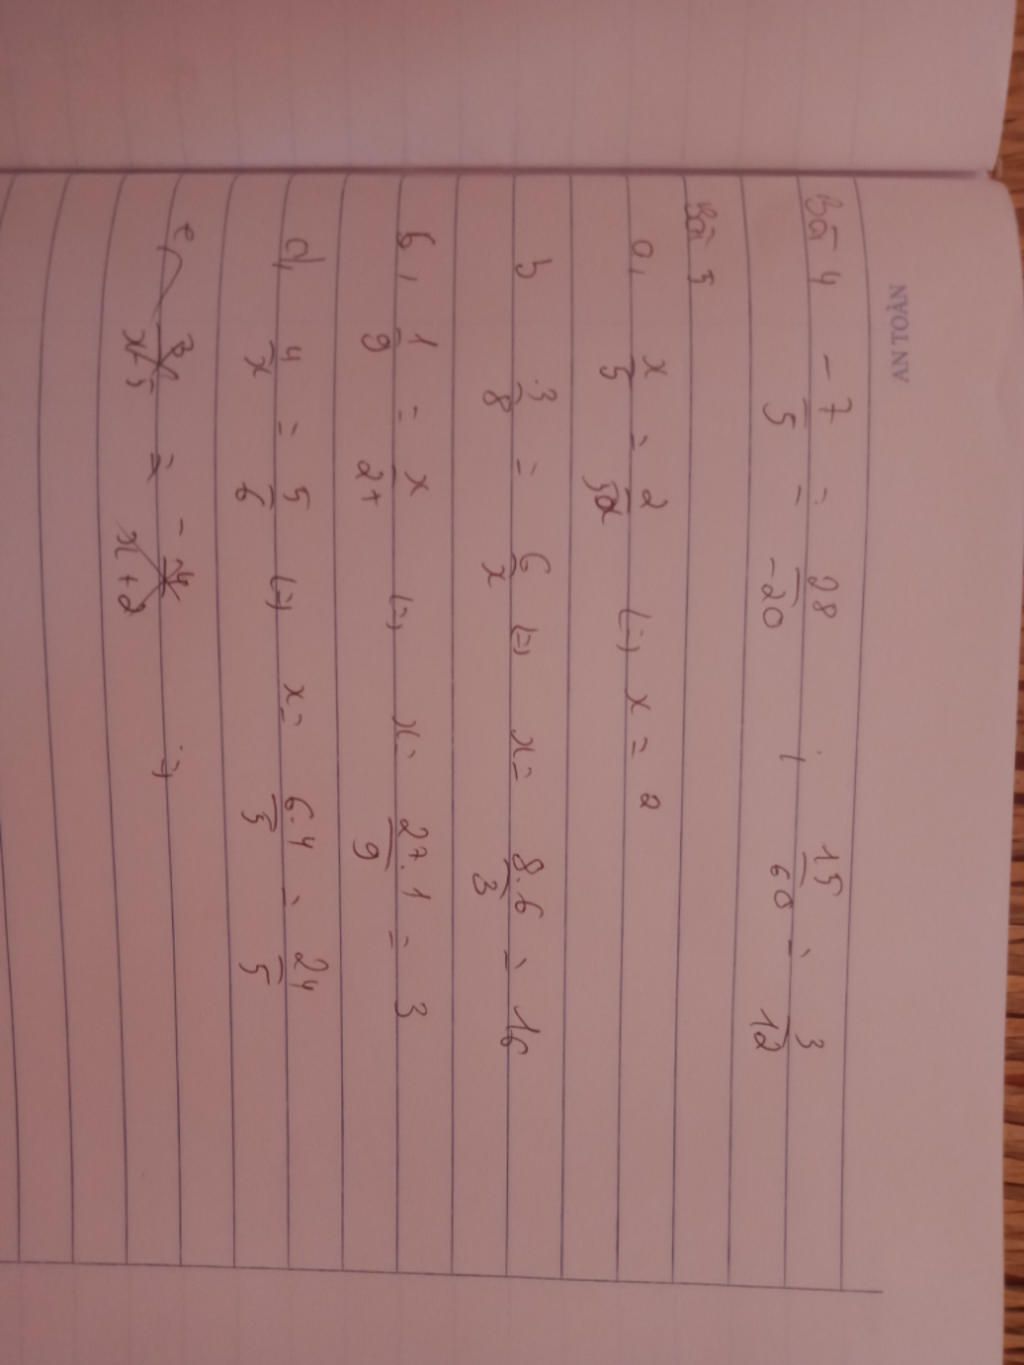 AN TOÀN
Bài 4 -7/5 = 28/-20 ; 15/60 = 3/12
Bài 5
a, x/5 = 2/5 (=) x = 2
b 3/8 = 6/x (=) x = 8.6/3 = 16
6, 1/9 = x/27 (=) x = 27.1/9 = 3
d, 4/x = 5/6 (=) x = 6.4/5 = 24/5
e, 3/x-5 = -4/x+2 =)